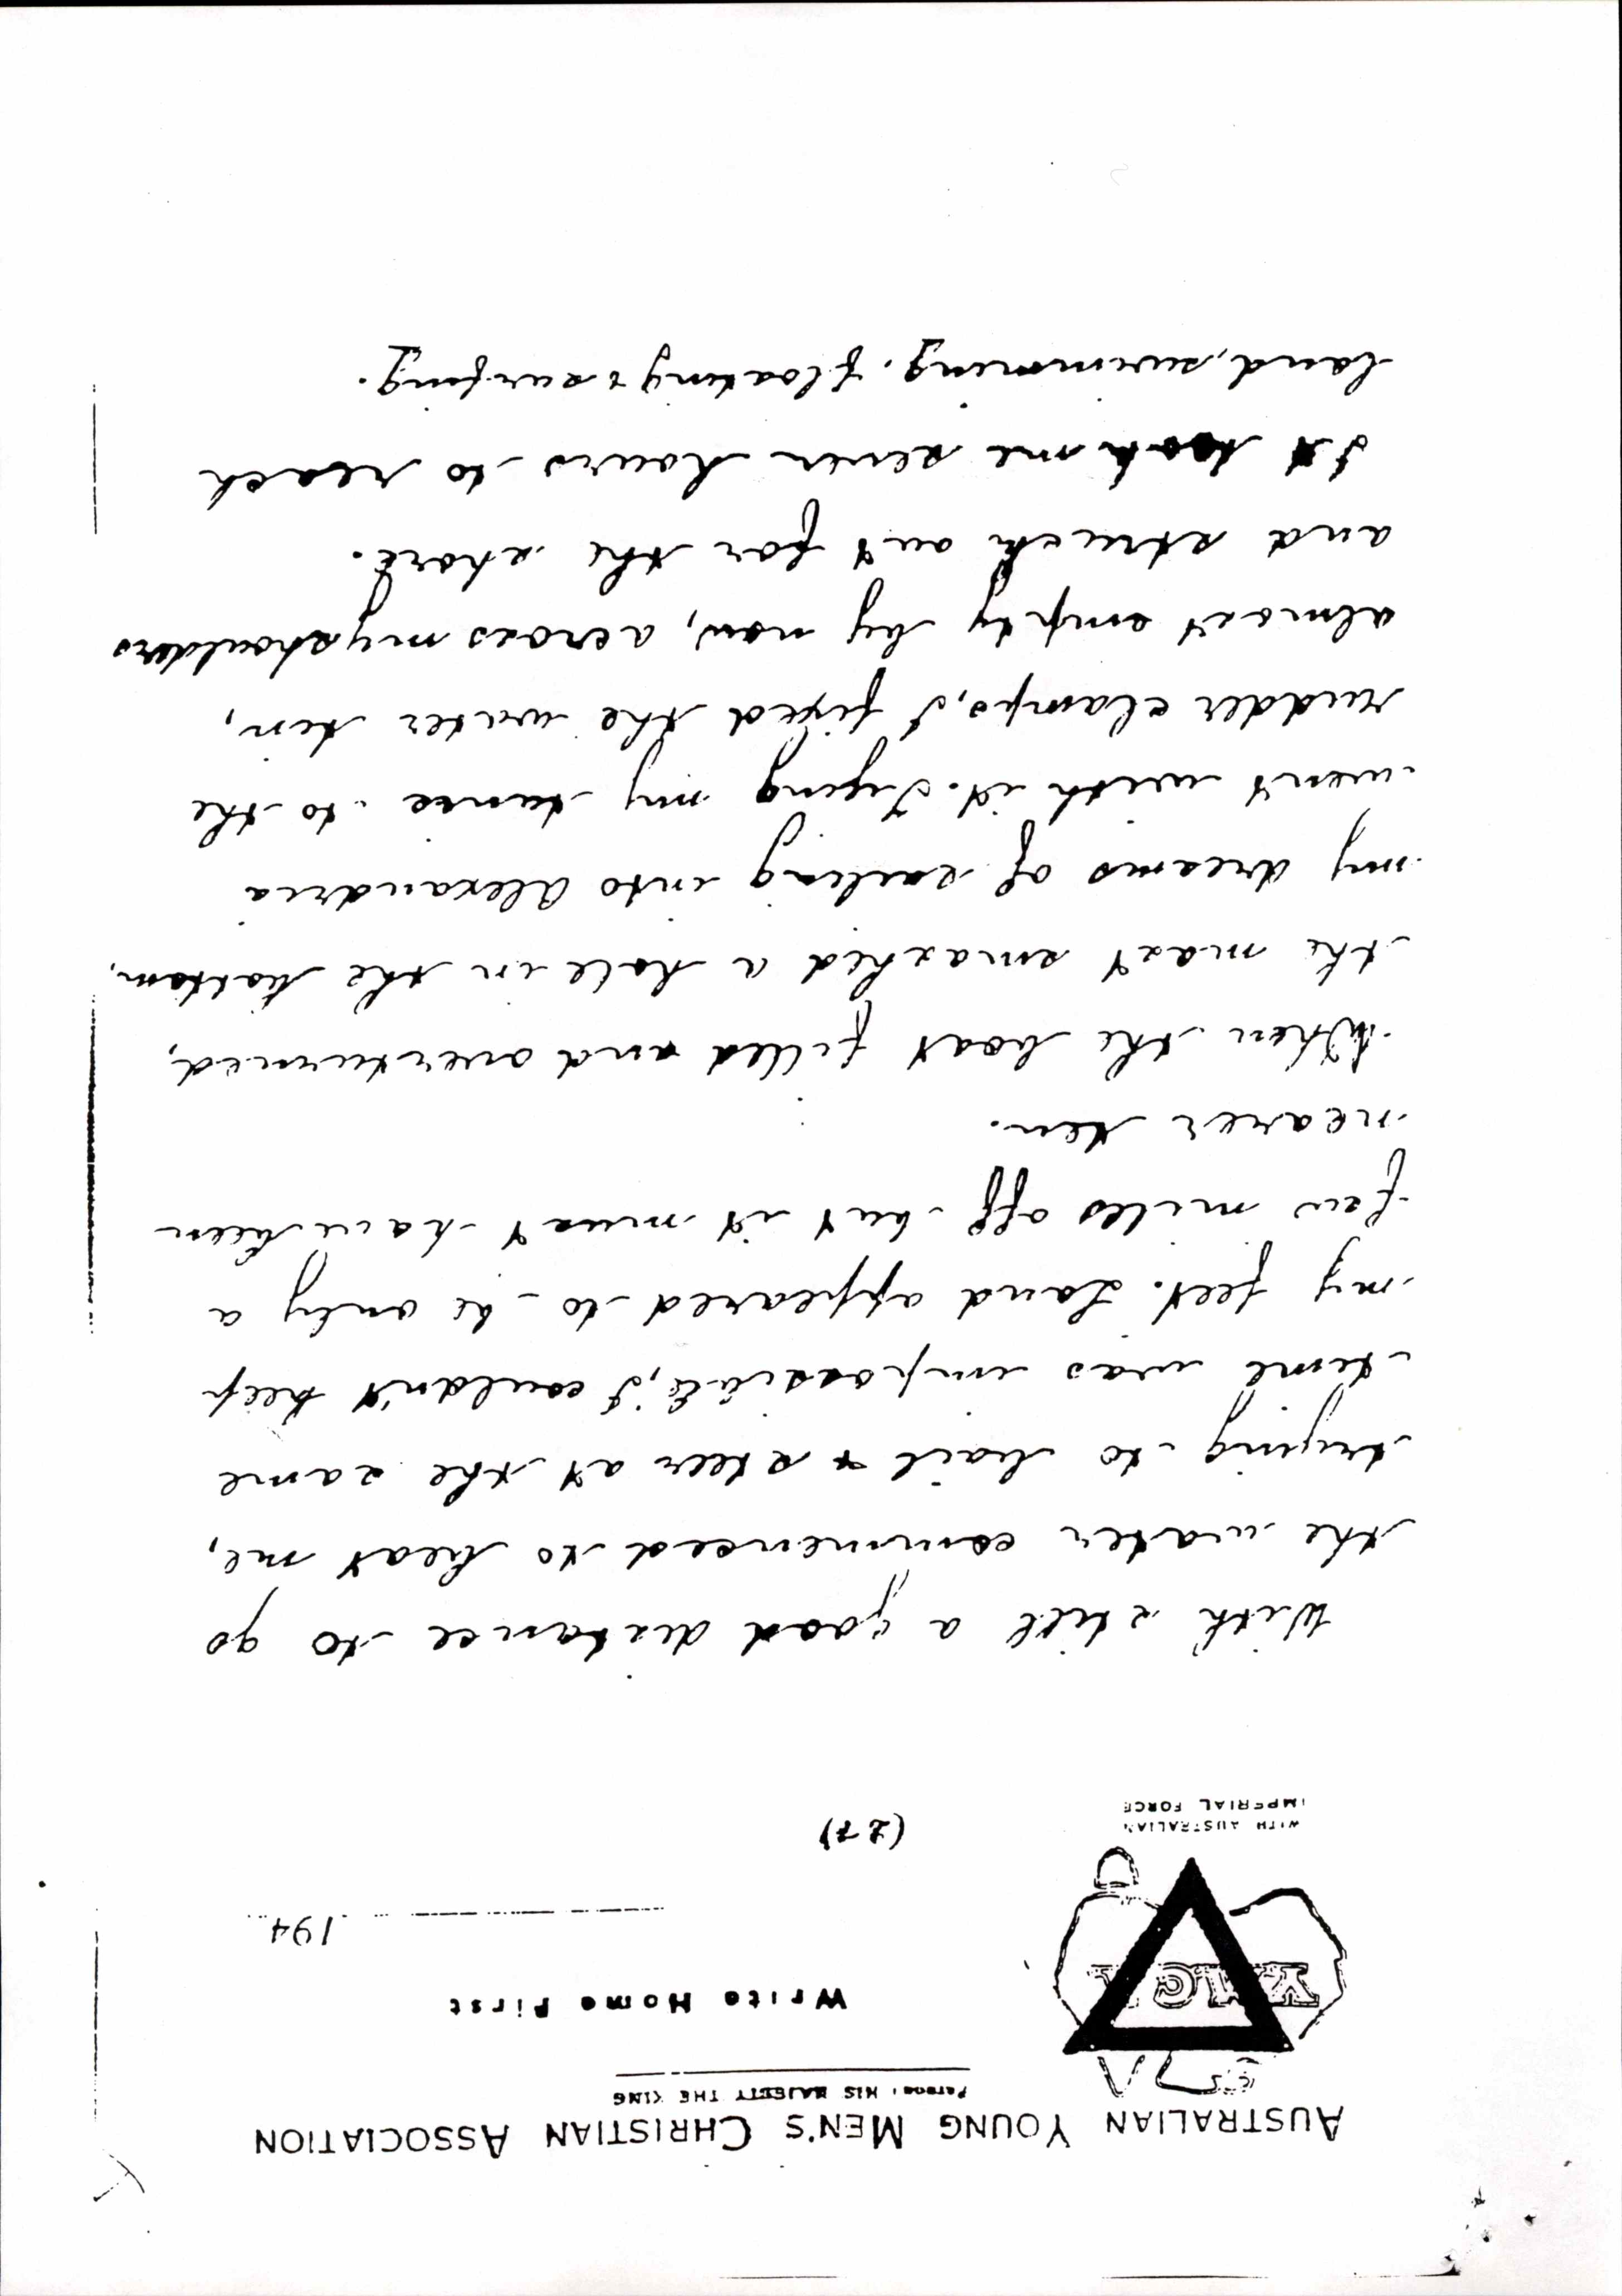 AUSTRALIAN YOUNG MEN'S CHRISTIAN ASSOCIATION
Patron: HIS MAJESTY THE KING
Write Home First
YMCA
194
WITH AUSTRALIAN
IMPERIAL FORCE
(27)
With still a good distance to go
the water commenced to beat me,
trying to bail & steer at the same
time was impossible, I couldn't keep
my feet. Land appeared to be only a
few miles off but it must have been
nearer ten.
When the boat filled and overturned,
the mast smashed a hole in the bottom,
my dreams of sailing into Alexandria
went with it. Tying my tunic to the
rudder clamps, I fixed the water tin,
almost empty by now, across my shoulders
and struck out for the shore.
It took me seven hours to reach
land, swimming, floating & surfing.